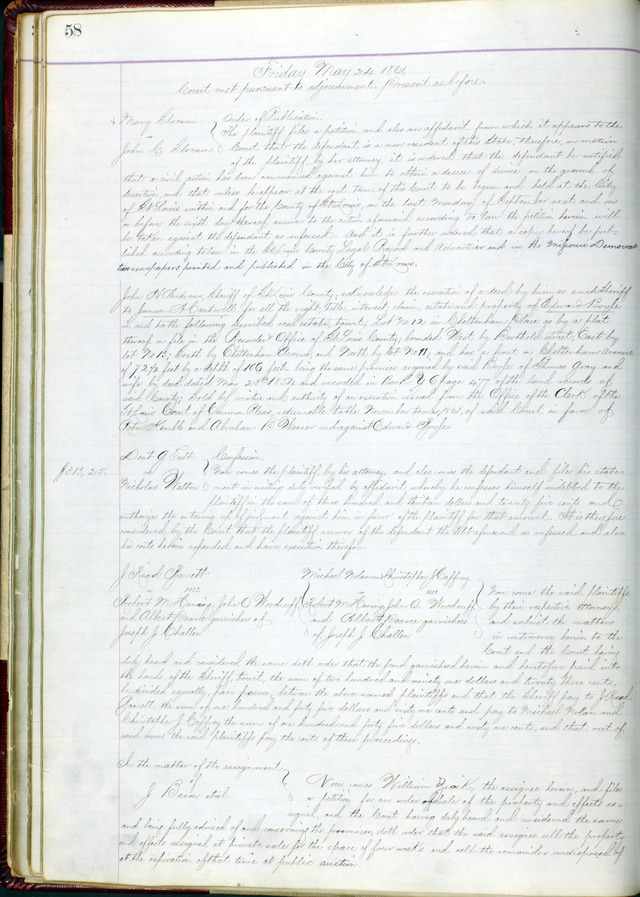 58
Friday May 24 1861
Court met pursuant to adjournment. Present as before.
Mary Slocum
vs
John C Slocum
Order of Publication.
The plaintiff files a petition and also an affidavit from which it appears to the
Court that the defendant is a non resident of this State, therefore, on motion
of the plaintiff by her attorney it is ordered that the defendant be notified
that a civil action has been commenced against him to obtain a decree of divorce, on the ground of
desertion, and that unless he appear at the next term of this Court to be begun and held at the City
of St Louis within and for the County of St Louis, on the last Monday of September next and on
or before the sixth day thereof answer to the action aforesaid according to law the petition herein will
be taken against the defendant as confessed. And it is further ordered that a copy hereof be pub-
lished according to law in the St Louis County Legal Record and Advertiser and in the Missouri Democrat
two newspapers printed and published in the City of St Louis.
John H Andrews, Sheriff of St Louis County, acknowledges the execution of a deed by him as such Sheriff
to James for all the right, title, interest, claim, estate and property of Edward
in and to the following described real estate, to wit, Lot No 12 in Cheltenham Place, as by a plat
thereof on file in the Recorder's Office of St Louis County, bounded West by Barthold street, East by
Lot No 13, South by Cheltenham Avenue and North by lot No 11, and has a front on Cheltenham Avenue
of feet by a depth of 100 feet. being the same premises acquired by said of Thomas Gray and
wife by deed dated May and recorded in Book page 477 of the land records of
said County; Sold by virtue and authority of an execution issued from the Office of the Clerk of the
St Louis Court of Common Pleas, returnable to the November term, 1861, of said Court in favor of
Peter and Abraham B Warner and against Edward
$313,25.
Dent G Tutt
vs
Nicholas Watton
Confession.
Now comes the plaintiff, by his attorney, and also comes the defendant and files his state-
ment in writing duly verified by affidavit whereby he confesses himself indebted to the
plaintiff in the sum of three hundred and thirteen dollars and twenty five cents, and
authorizes the entering of judgment against him in favor of the plaintiff for that amount. It is therefore
considered by the Court that the plaintiff recover of the defendant the debt aforesaid as confessed and also
his costs herein expended and have execution therefor.
J Read
vs
Robert M Horning, John O Woodruff
and Albert Pearce garnishees of
Joseph J Challer
Michael Nolan and Christopher J Caffrey
vs
Robert M Horning John O Woodruff
and Albert Pearce garnishees
of Joseph J Challer
Now come the said plaintiffs
by their respective attorneys
and submit the matters
in controversy herein to the
Court and the Court having
duly heard and considered the same doth order that the fund garnished herein and heretofore paid into
the hands of the Sheriff, to wit, the sum of two hundred and ninety one dollars and twenty three cents,
be divided equally, between the above named plaintiffs and that the Sheriff pay to J Read
the sum of one hundred and forty five dollars and sixty one cents and pay to Michael Nolan and
Christopher J Caffrey the sum of one hundred and forty five dollars and sixty one cents, and that out of
said sums the said plaintiffs pay the costs of these proceedings.
In the matter of the assignment
of
J et al
Now comes William the assignee herein, and files
a petition for an order of sale of the property and effects as-
signed, and the Court having duly heard and considered the same
and being fully advised of and concerning the premises, doth order that the said assignee sell the property
and effects assigned at private sale for the space of four weeks and sell the remainder undisposed of
at the expiration of that time at public auction.